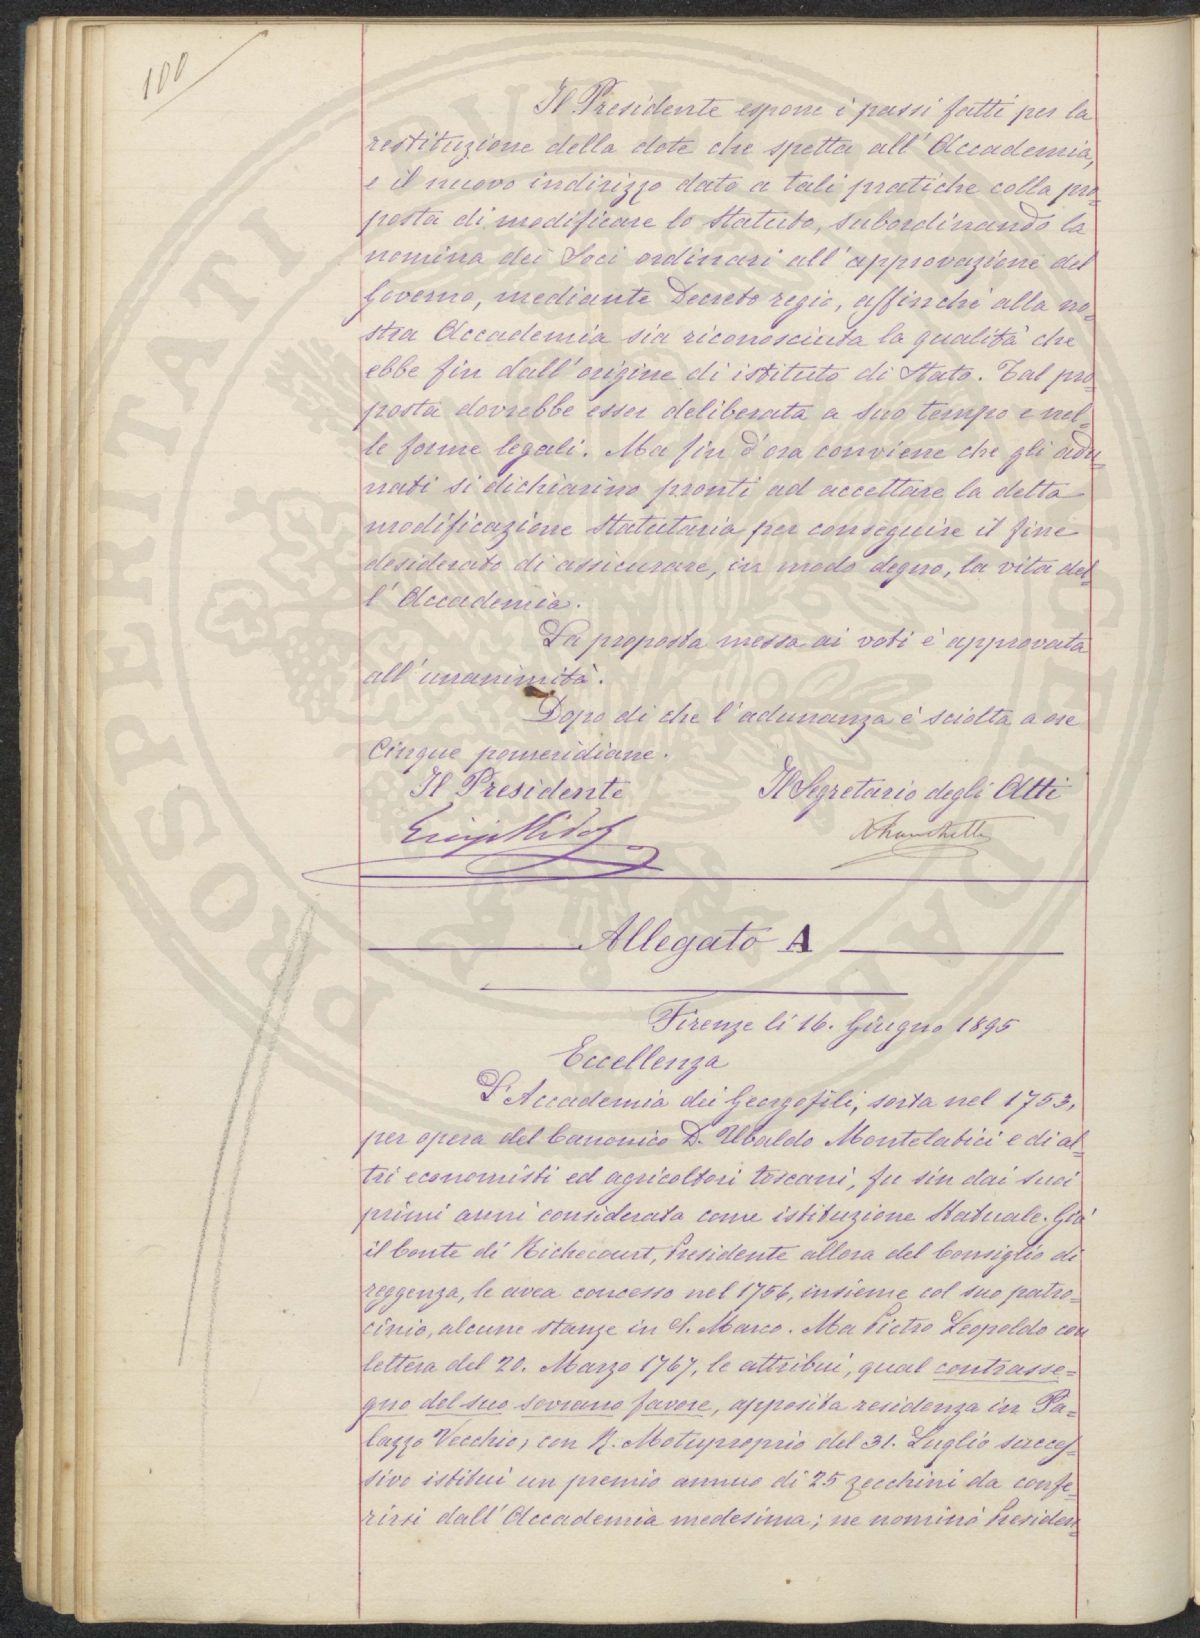 100
Il Presidente espone i passi fatti per la
restituzione della dote che spetta all'Accademia,
e il nuovo indirizzo dato a tali pratiche colla pro=
posta di modificare lo Statuto, subordinando la
nomina dei Soci ordinari all'approvazione del
Governo, mediante Decreto regio, affinchè alla no=
stra Accademia sia riconosciuta la qualità che
ebbe fin dall'origine di istituto di Stato. Tal pro=
posta dovrebbe esser deliberata a suo tempo e nel=
le forme legali. Ma fin d'ora conviene che gli adu=
nati si dichiarino pronti ad accettare la detta
modificazione statutaria per conseguire il fine
desiderato di assicurare, in modo degno, la vita del=
l'Accademia.
La proposta messa ai voti è approvata
all'unanimità.
Dopo di che l'adunanza è sciolta a ore
Cinque pomeridiane.
Il Presidente Il Segretario degli Atti
Allegato A
Firenze li 16. Giugno 1895
Eccellenza
L'Accademia dei Georgofili, sorta nel 1753,
per opera del Canonico D. Ubaldo Montelatici e di al=
tri economisti ed agricoltori toscani, fu sin dai suoi
primi anni considerata come istituzione Statuale. Già
il Conte di Richecourt, Presidente allora del Consiglio di
reggenza, le avea concesso nel 1756, insieme col suo patro=
cinio, alcune stanze in S. Marco. Ma Pietro Leopoldo con
lettera del 20. Marzo 1767, le attribuì, qual contrasse=
gno del suo sovrano favore, apposita residenza in Pa=
lazzo Vecchio; con R. Motuproprio del 31. Luglio succes=
sivo istituì un premio annuo di 25 zecchini da confe=
rirsi dall'Accademia medesima; ne nominò Presiden=
PROSPERITATI PUBLICAE AUGENDAE